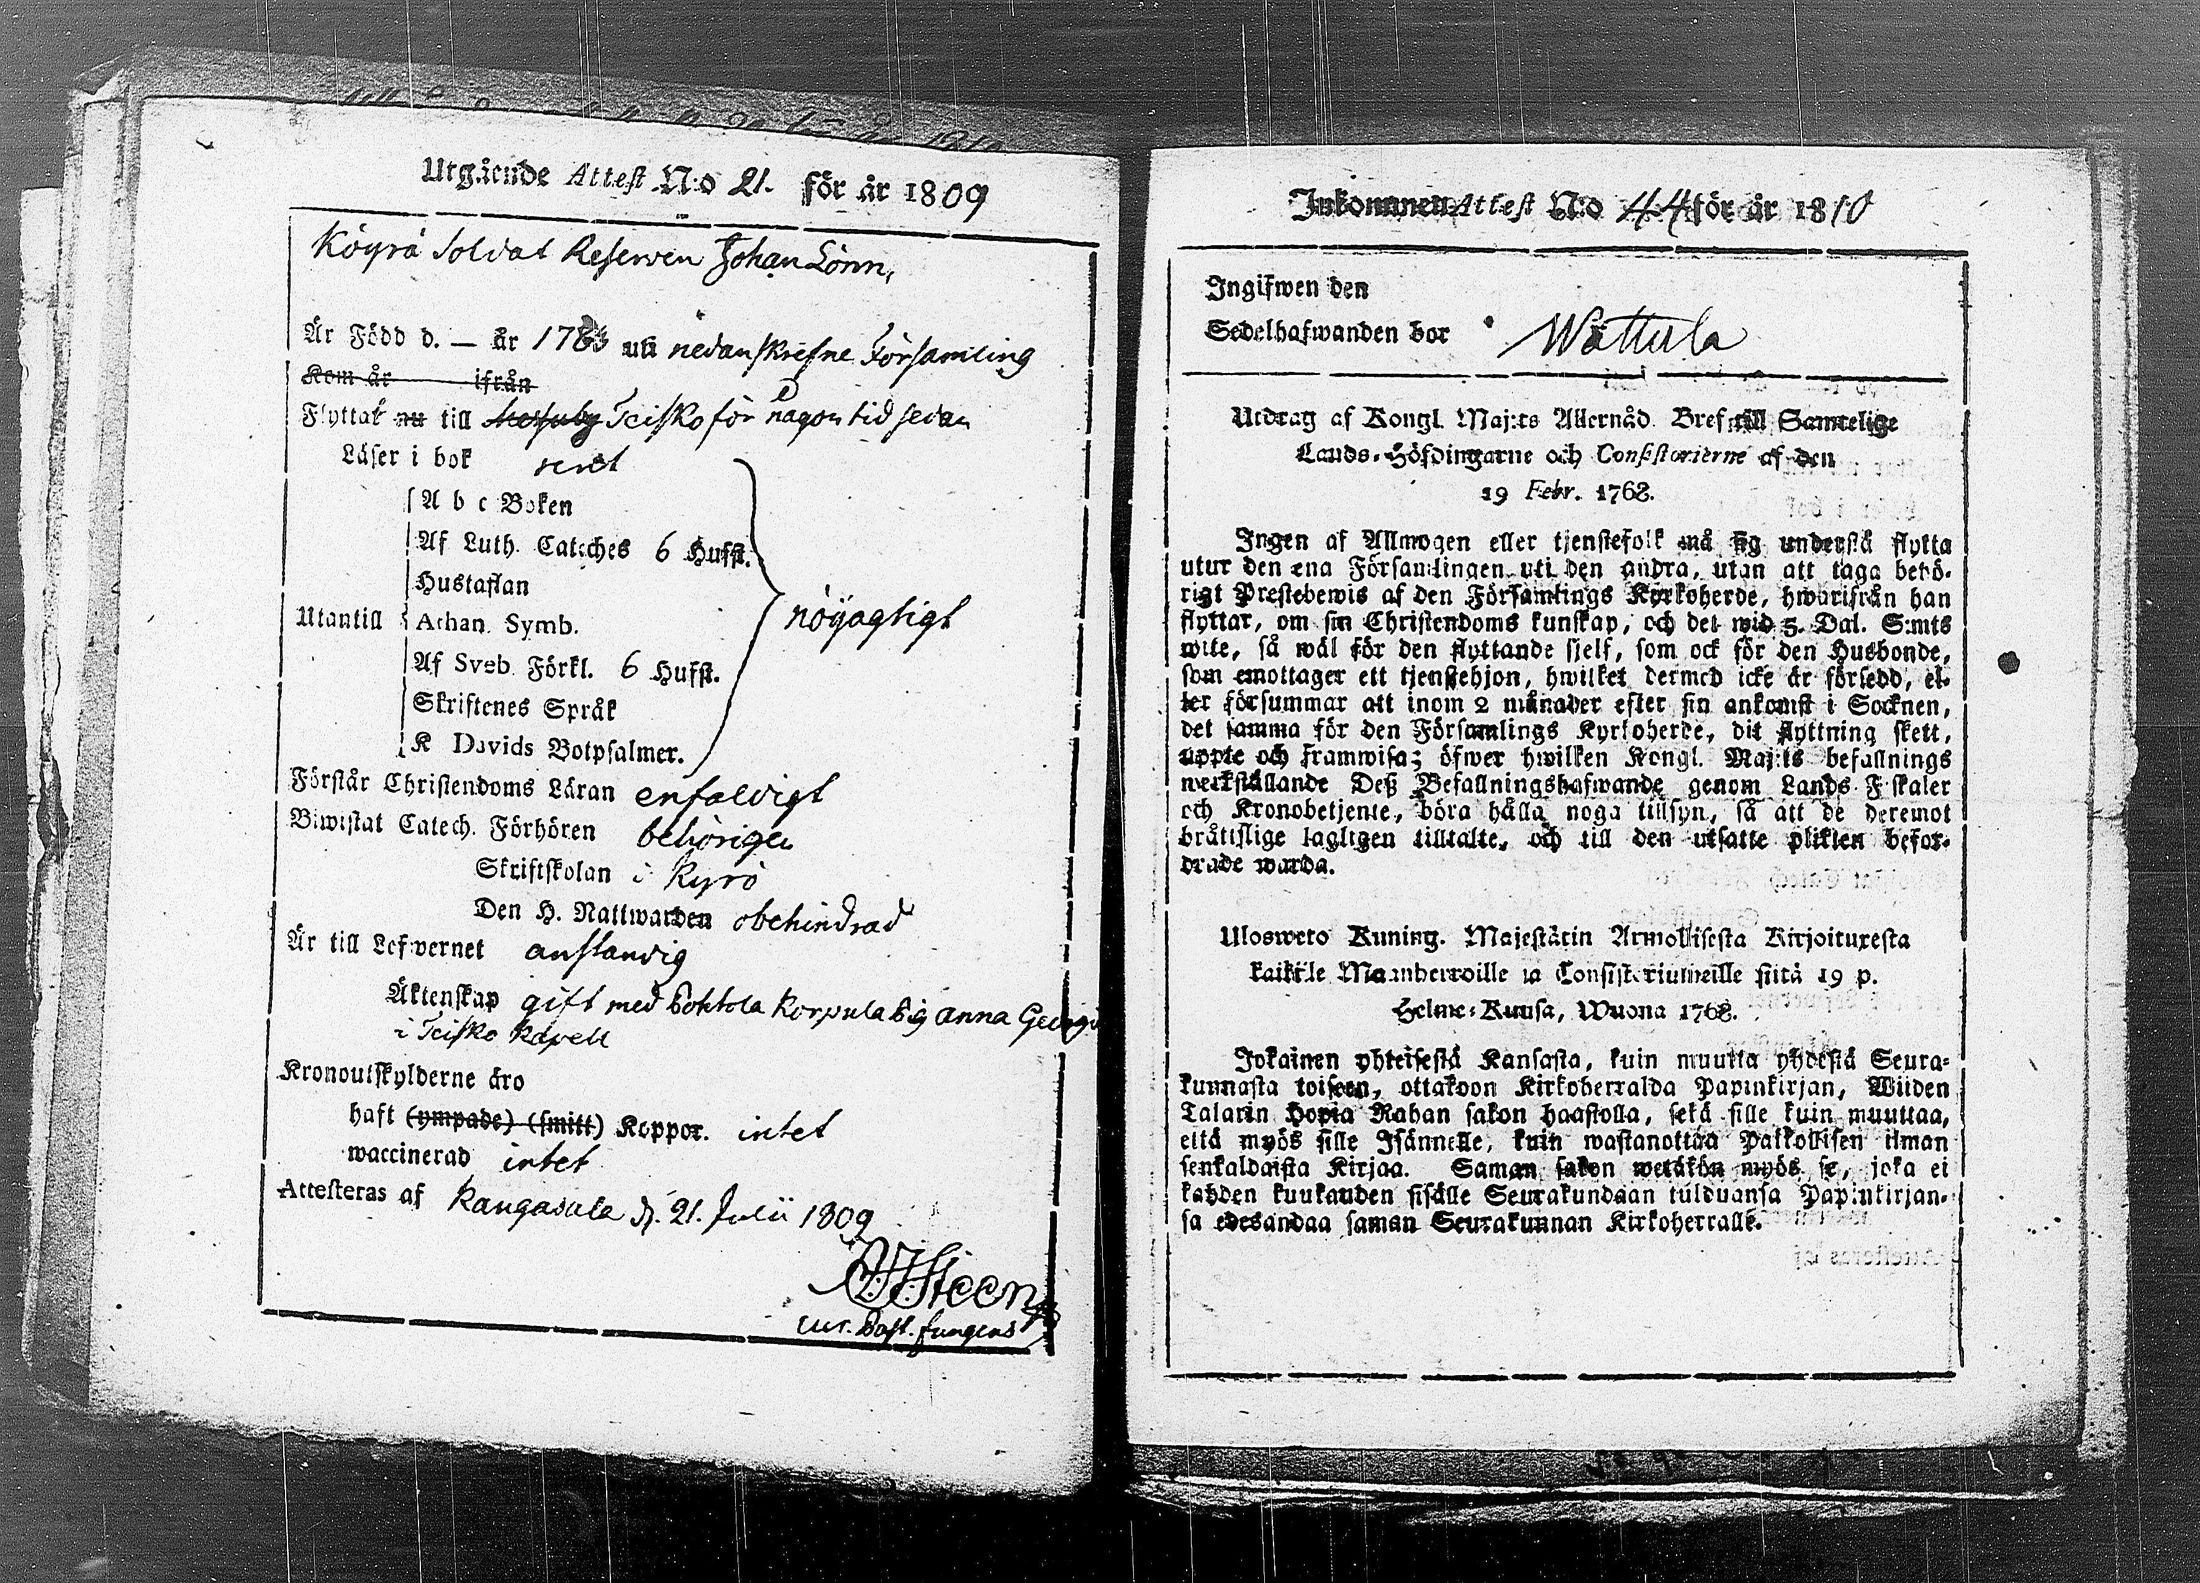 Utgående Attest N:o 21. för år 1809
Köyrä Soldat Reserven Johan Lönn,
Är Född d. — år 178 uti nedanskrefne Församling
Kom år ifrån
Flyttat nu till Teisko för någon tid sedan
Läser i bok rent
A b c Boken
Af Luth. Catches 6 Hufst.
Hustaflan
Utantill
Athan. Symb.
nöyagtigt
Af Sveb. Förkl. 6 Hufst.
Skriftenes Språk
K Davids Botpsalmer.
Förstår Christendoms Läran enfaldigt
Biwistat Catech. Förhören behörigen
Skriftskolan i Kyro
Den H. Nattwarden obehindrad
Är till Lefwernet anständig
Äktenskap gift med Korpula Pig Anna
i Teisko Kapell
Kronoutskylderne äro
haft (ympade) (smitt) Koppor. intet
waccinerad intet
Attesteras af Kangasala d. 21. Julii 1809
Steen
Past. fungens
Inkommen Attest N:o 44 för år 1810
Ingifwen den
Sedelhafwanden bor Wättula
Utdrag af Kongl. Maj:ts Allernåd. Bref till Samtelige
Lands-Höfdingarne och Consistorierne af den
19 Febr. 1768.
Ingen af Allmogen eller tjenstefolk må sig understå flytta
utur den ena Församlingen uti den andra, utan att taga behö-
rigt Prestebewis af den Församlings Kyrkoherde, hwarifrån han
flyttar, om sin Christendoms kunskap, och det wid 5. Dal. S:mts
wite, så wäl för den flyttande sjelf, som ock för den Husbonde,
som emottager ett tjenstehjon, hwilket dermed icke är försedd, el-
ler försummar att inom 2 månader efter sin ankomst i Socknen,
det samma för den Församlings Kyrkoherde, dit flyttning skett,
uppte och framwisa; öfwer hwilken Kongl. Maj:ts befallnings
werkställande Deß Befallningshafwande genom Lands-Fiskaler
och Kronobetjente, böra hålla noga tillsyn, så att de deremot
bråtislige lagligen tilltalte, och till den utsatte plikten befor-
drade warda.
Ulosweto Kuning. Majestätin Armollisesta Kirjoituxesta
kaikille Maanherroille ja Consistoriumeille siitä 19 p.
Helme-Kuusa, Wuona 1768.
Jokainen yhteisestä Kansasta, kuin muutta yhdestä Seura-
kunnasta toiseen, ottakoon Kirkoherralda Papinkirjan, Wiiden
Talarin Hopia Rahan sakon haastolla, sekä sille kuin muuttaa,
että myös sille Isännelle, kuin wastanottaa Palkollisen ilman
senkaldaista Kirjaa. Saman sakon wetäkön myös se, joka ei
kahden kuukauden sisälle Seurakundaan tulduansa Papinkirjan-
sa edesandaa saman Seurakunnan Kirkoherralle.